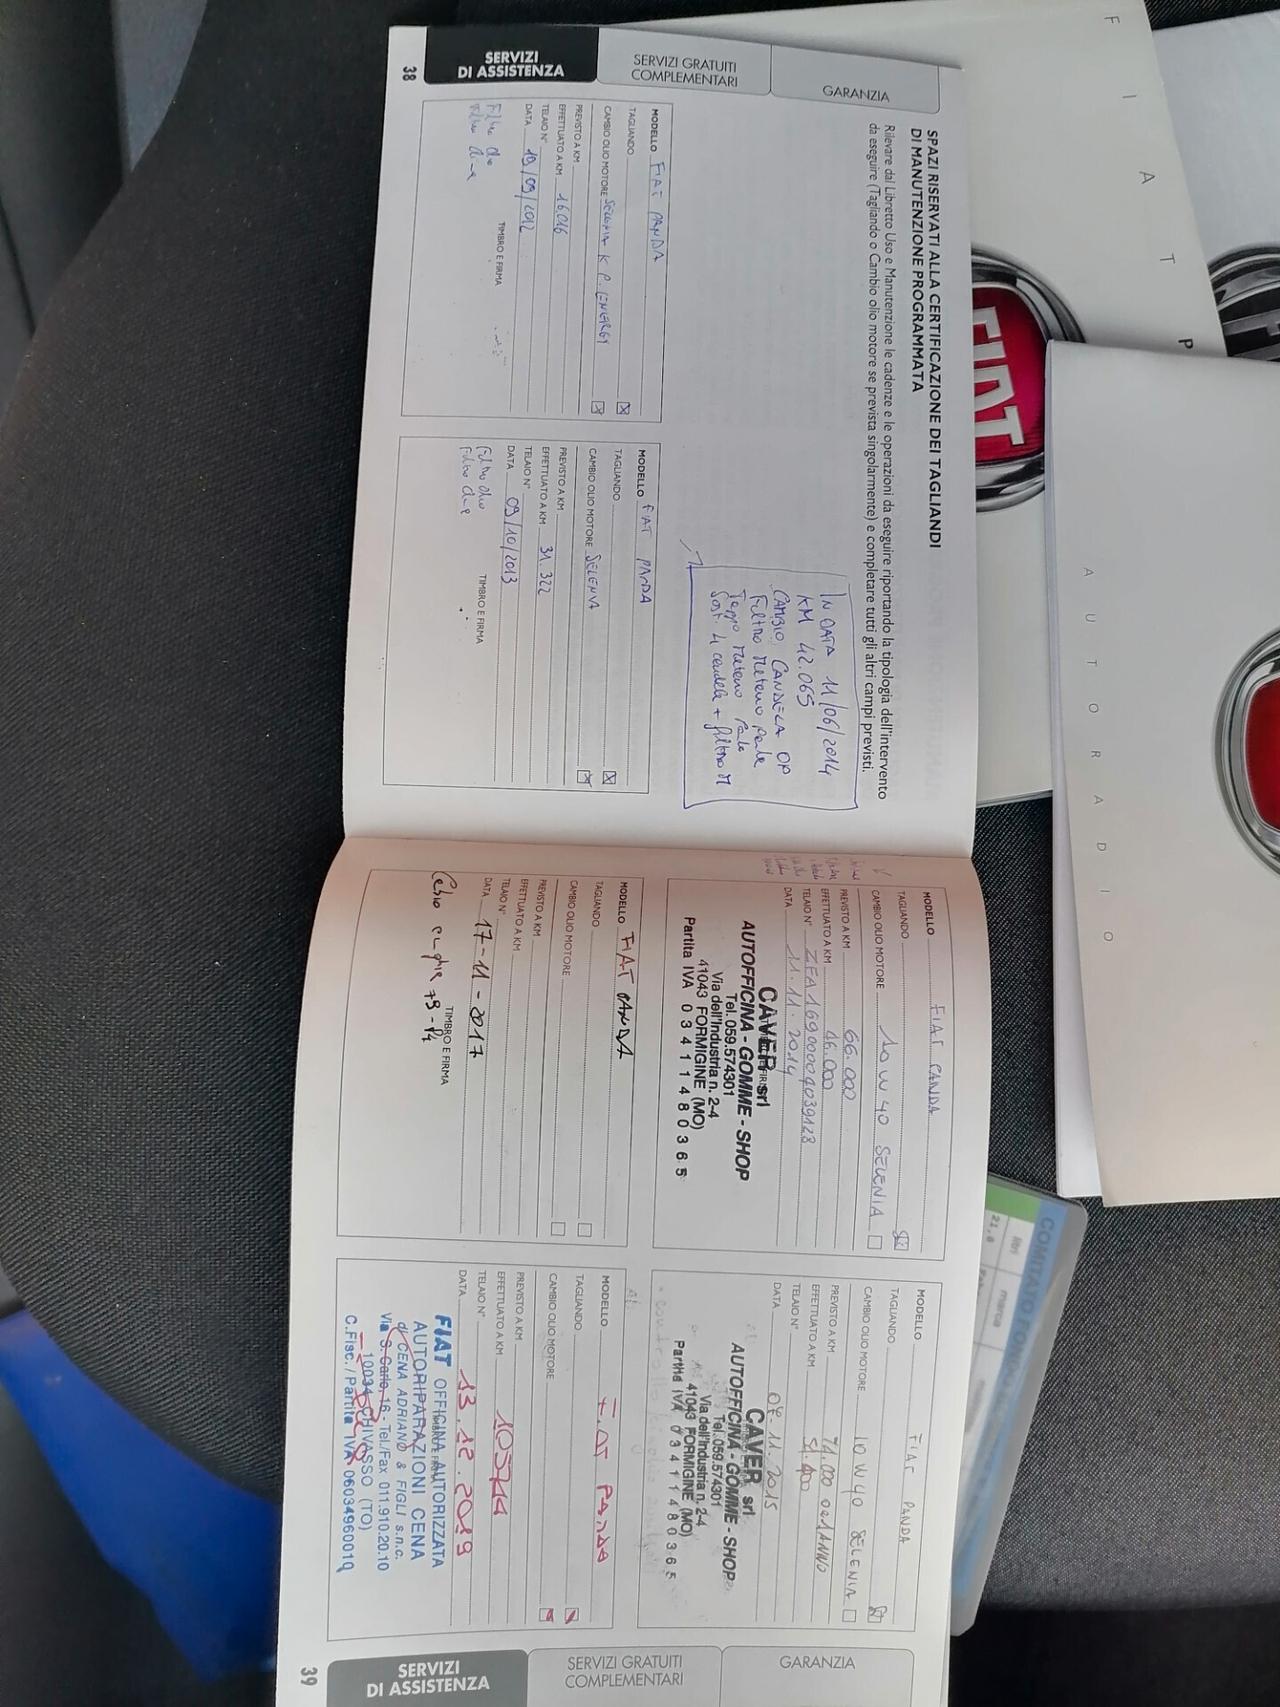 SERVIZI
DI ASSISTENZA
SERVIZI GRATUITI
COMPLEMENTARI
GARANZIA
38
SPAZI RISERVATI ALLA CERTIFICAZIONE DEI TAGLIANDI
DI MANUTENZIONE PROGRAMMATA
Rilevare dal Libretto Uso e Manutenzione le cadenze e le operazioni da eseguire riportando la tipologia dell'intervento
da eseguire (Tagliando o Cambio olio motore se prevista singolarmente) e completare tutti gli altri campi previsti.
IN DATA 11/06/2014
KM 42.065
CAMBIO CANDELA OP
Filtro Metano
Tappo Metano
Sost. 4 candele + filtro M
MODELLO FIAT PANDA
TAGLIANDO
CAMBIO OLIO MOTORE SELENIA K P. ENERGY
PREVISTO A KM
EFFETTUATO A KM 16.016
TELAIO N°
DATA 19/09/2012
Filtro olio
TIMBRO E FIRMA
MODELLO FIAT PANDA
TAGLIANDO
CAMBIO OLIO MOTORE SELENIA
PREVISTO A KM
EFFETTUATO A KM 31.322
TELAIO N°
DATA 09/10/2013
Filtro olio
TIMBRO E FIRMA
MODELLO FIAT PANDA
TAGLIANDO
CAMBIO OLIO MOTORE 10W40 SELENIA
PREVISTO A KM 66.000
EFFETTUATO A KM 46.000
TELAIO N° ZFA16900004039128
DATA 11.11.2014
CAVER srl
AUTOFFICINA - GOMME - SHOP
Via dell'Industria n. 2-4
Tel. 059.574301
41043 FORMIGINE (MO)
Partita IVA 03411480365
MODELLO FIAT PANDA
TAGLIANDO
CAMBIO OLIO MOTORE 10W40 SELENIA
PREVISTO A KM 74.000 O 01 ANNO
EFFETTUATO A KM 54.400
TELAIO N°
DATA 11.2015
CAVER srl
AUTOFFICINA - GOMME - SHOP
Tel. 059.574301
Via dell'Industria n. 2-4
41043 FORMIGINE (MO)
Partita IVA 03411480365
MODELLO FIAT PANDA
TAGLIANDO
CAMBIO OLIO MOTORE
PREVISTO A KM
EFFETTUATO A KM
TELAIO N°
DATA 17-11-2017
TIMBRO E FIRMA
MODELLO FIAT PANDA
TAGLIANDO
CAMBIO OLIO MOTORE
PREVISTO A KM
EFFETTUATO A KM
TELAIO N°
DATA 13.12.2019
FIAT OFFICINA AUTORIZZATA
AUTORIPARAZIONI CENA
di CENA ADRIANO & FIGLI s.n.c.
Via S. Carlo, 16 - Tel./Fax 011.910.20.10
10034 CHIVASSO (TO)
C.Fisc. / Partita IVA 06034960010
39
SERVIZI
DI ASSISTENZA
SERVIZI GRATUITI
COMPLEMENTARI
GARANZIA
FIAT
FIAT
AUTORADIO
litri
marca
21,8